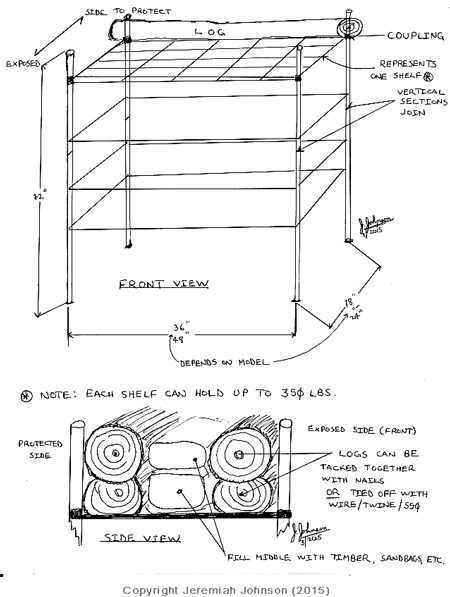 SIDE TO PROTECT
EXPOSED
LOG
COUPLING
REPRESENTS
ONE SHELF ⊛
VERTICAL
SECTIONS
JOIN
72"
J. Johnson
5/2015
FRONT VIEW
36"
48"
18"
24"
DEPENDS ON MODEL
⊛ NOTE: EACH SHELF CAN HOLD UP TO 350 LBS.
PROTECTED
SIDE
EXPOSED SIDE (FRONT)
LOGS CAN BE
TACKED TOGETHER
WITH NAILS
OR TIED OFF WITH
WIRE/TWINE/550
J. Johnson
5/2015
SIDE VIEW
FILL MIDDLE WITH TIMBER, SANDBAGS, ETC.
Copyright Jeremiah Johnson (2015)